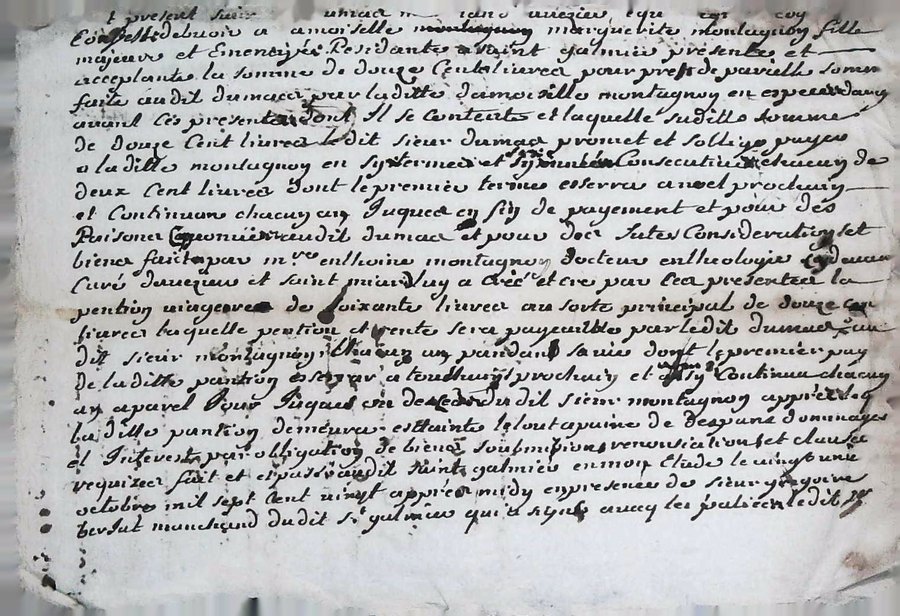 t present sieur dumas
Confesse debvoir a damoiselle marguerite montagnon fille
majeure et Residante a saint galmier presente et
acceptante la somme de douze Cent livres pour prest de pareille somme
faite audit dumas par laditte damoiselle montagnon en especes dans
avant ces presentes dont Il se Contente et laquelle suditte somme
de douze Cent livres ledit sieur dumas promet et soblige payer
a laditte montagnon en six termes et Consecutives chacun de
deux Cent livres dont le premier terme esserra a noel prochain
et Continuera chacun an Juques en fin de payement et pour des
Raisons audit dumas et pour des Justes Consideration et
biens faits par mre enthoine montagnon docteur en theologie
Curé daveizieu et saint luy a Créé et cre par ces presentes la
pention viagere de soixante livres au sorte principal de douze cen
livres laquelle pention et rente sera payeable par ledit dumas au
dit sieur montagnon chacun an pandant sa vie dont le premier pay
de laditte pantion esserra a toussaint prochain et Continu chacun
an a pareil Jour Juques au deceds dudit sieur montagnon apprés leq
laditte pantion demeura estainte le tout a paine de despans dommages
et Interest par obligation de biens soubmitions renontiations et clauses
requizes fait et passé audit saint galmier en mon Etude le vingt unie
octobre mil sept Cent vingt apprés midy en presence de sieur gregoire
marchand dudit st galmier qui a signé avecq les parties ledit jour